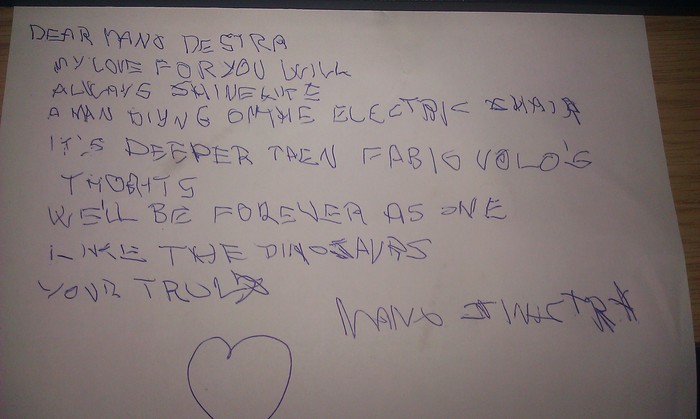 DEAR MANO DESTRA
MY LOVE FOR YOU WILL
ALWAYS SHINE LIKE
A MAN DIYNG ON THE ELECTRIC CHAIR
IT'S DEEPER THEN FABIO VOLO'S
THOGHTS
WE'LL BE FOREVER AS ONE
LIKE THE DINOSAURS
YOUR TRULY
MANO SINISTRA